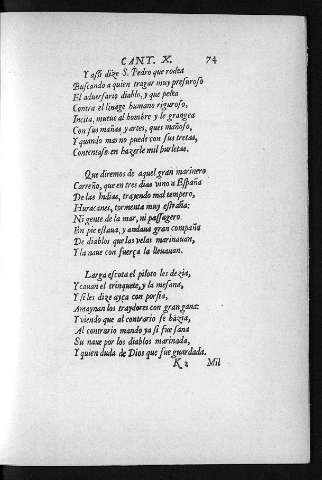 CANT. X. 74
Y assi dize S. Pedro que rodea
Buscando a quien tragar muy presuroso
El aduersario diablo, y que pelea
Contra el linage humano riguroso,
Incita, mueue al hombre y le grangea
Con sus mañas y artes, ques mañoso,
Y quando mas no puede con sus tretas,
Contentase en hazerle mil burletas.
Que diremos de aquel gran marinero
Carreño, que en tres dias vino a España
De las Indias, trayendo mal tempero,
Huracanes, tormenta muy estraña:
Ni gente de la mar, ni passagero
En pie estaua, y andaua gran compaña
De diablos que las velas marinauan,
Y la naue con fuerça la lleuauan.
Larga escota el piloto les dezia,
Y cauan el trinquete, y la mesana,
Y si les dize ayça con porfia,
Amaynan los traydores con gran gana:
Y viendo que al contrario se hazia,
Al contrario mando ya si fue sana
Su naue por los diablos marinada,
Y quien duda de Dios que fue guardada.
K 2 Mil